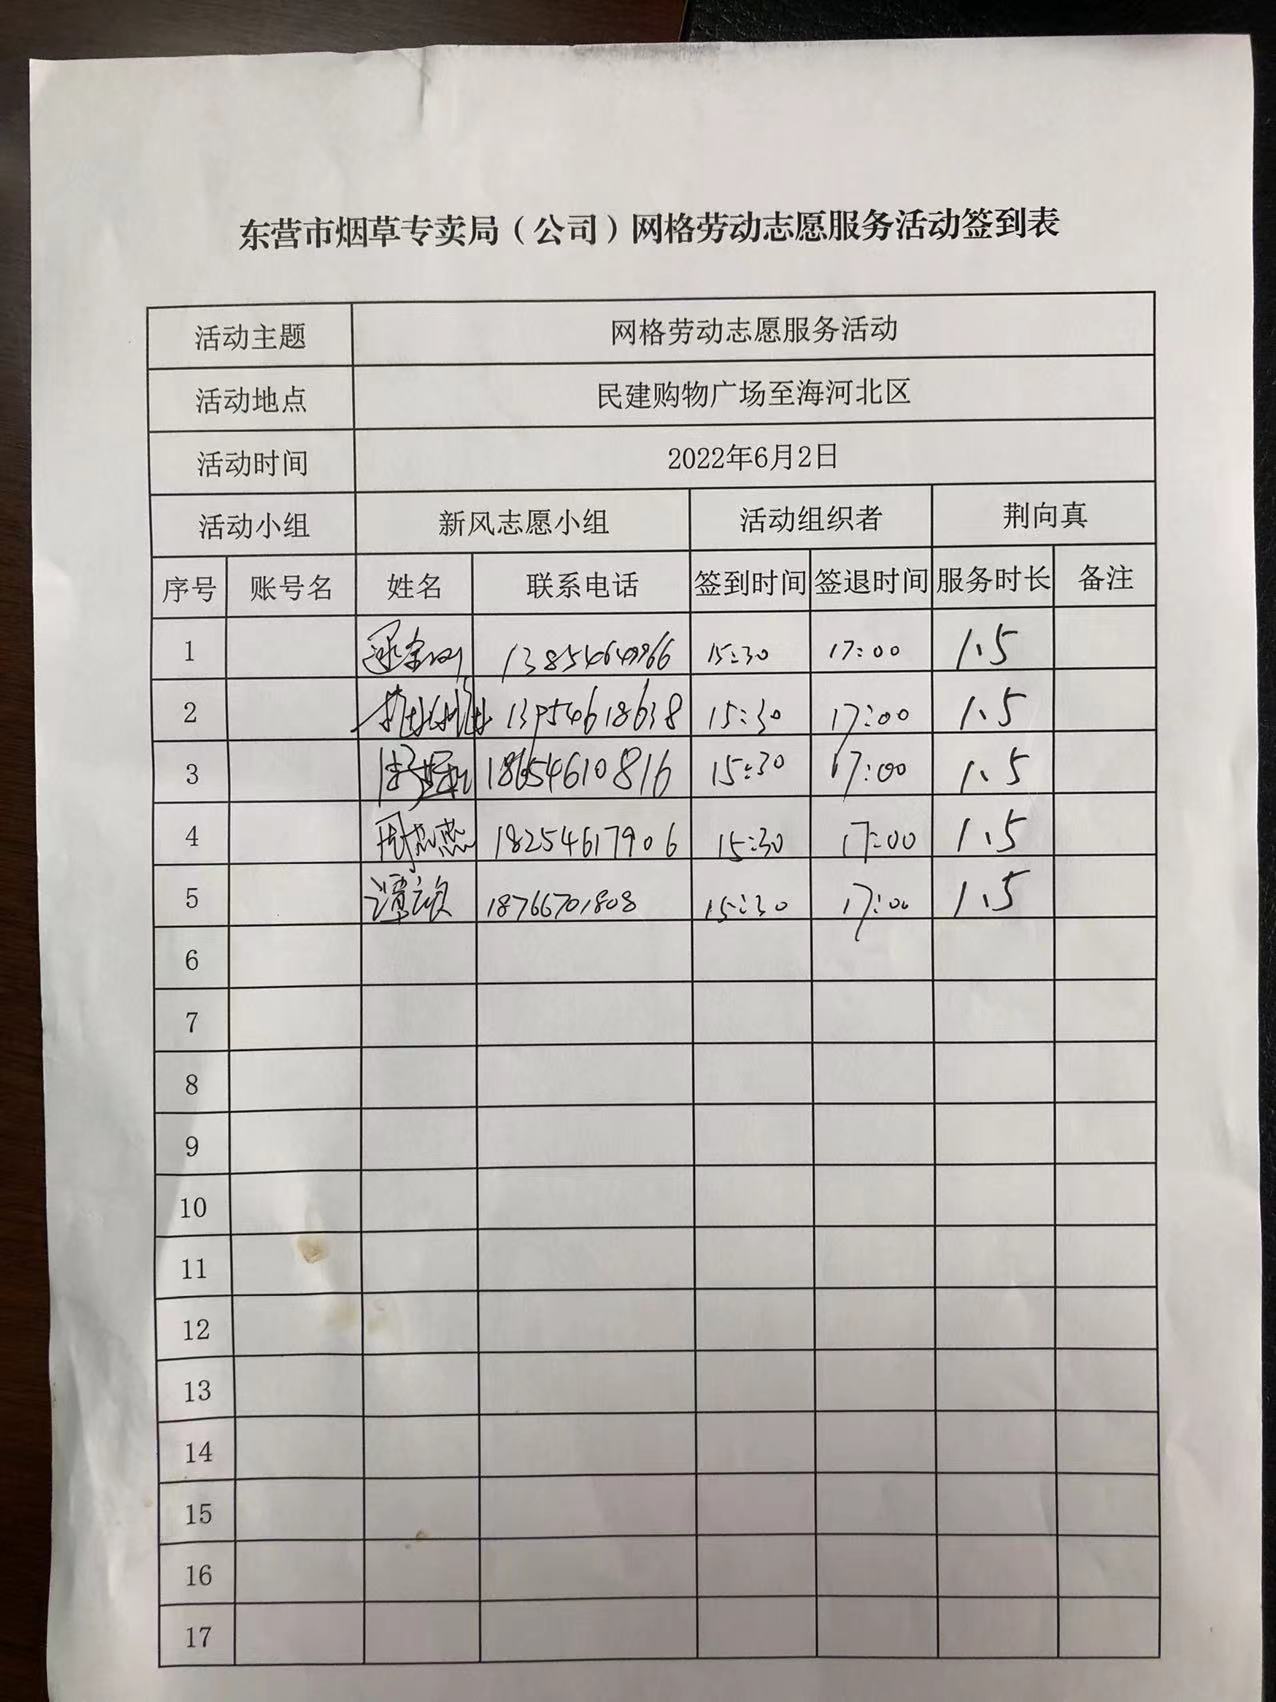 东营市烟草专卖局（公司）网格劳动志愿服务活动签到表
活动主题 网格劳动志愿服务活动
活动地点 民建购物广场至海河北区
活动时间 2022年6月2日
活动小组 新风志愿小组 活动组织者 荆向真
序号 账号名 姓名 联系电话 签到时间 签退时间 服务时长 备注
1 15:30 17:00 1.5
2 13954618638 15:30 17:00 1.5
3 18654610816 15:30 17:00 1.5
4 18254617906 15:30 17:00 1.5
5 18766701808 15:30 17:00 1.5
6
7
8
9
10
11
12
13
14
15
16
17